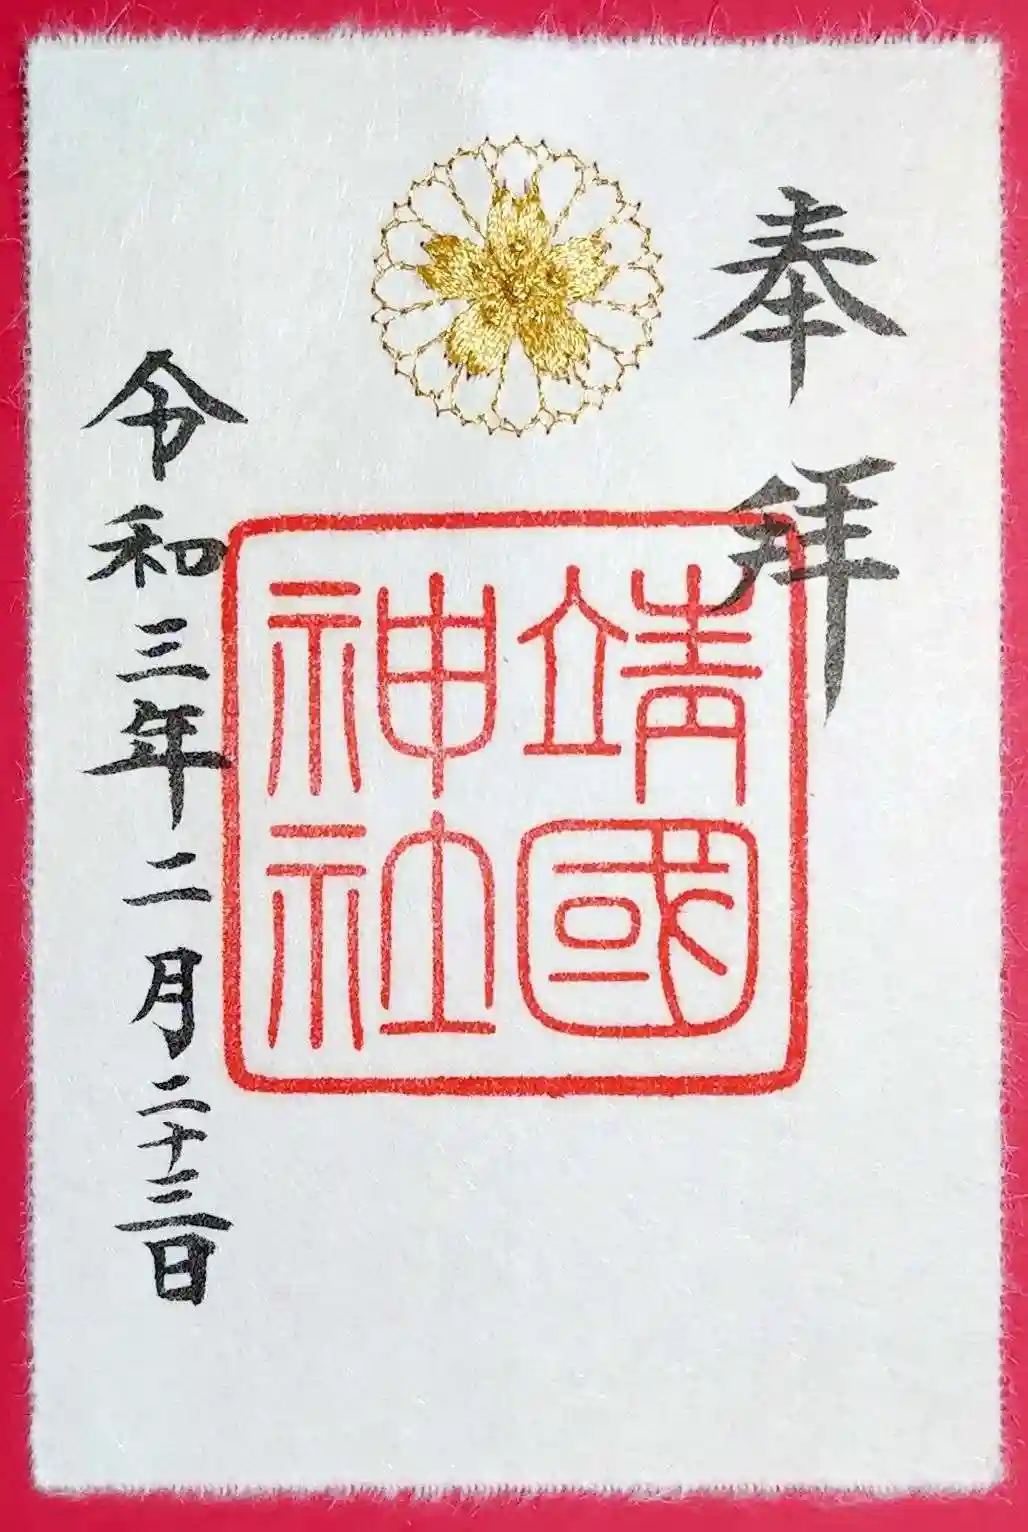 奉拝
靖國
神社
令和三年二月二十三日